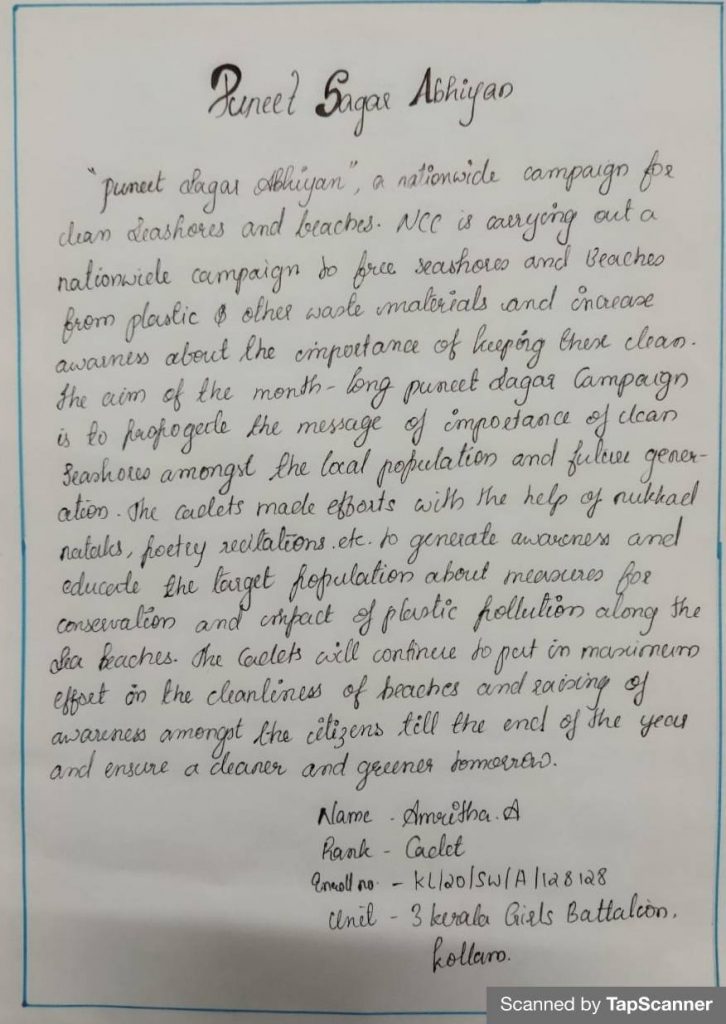 Puneet Sagar Abhiyan
"Puneet Sagar Abhiyan", a nationwide campaign for
clean seashores and beaches. NCC is carrying out a
nationwide campaign to free seashores and Beaches
from plastic & other waste materials and increase
awarness about the importance of keeping these clean.
The aim of the month-long puneet Sagar Campaign
is to propogede the message of importance of clean
seashores amongst the local population and future gener-
ation. The cadets made efforts with the help of nukkad
nataks, poetry recitations.etc. to generate awareness and
educade the target population about measures for
conservation and impact of plastic pollution along the
Sea beaches. The Cadets will continue to put in maximum
effort in the cleanliness of beaches and raising of
awareness amongst the citizens till the end of the year
and ensure a cleaner and greener tomorrow.
Name - Amritha.A
Rank - Cadet
Enroll no. - KL/20/SW/A/128128
Unit - 3 kerala Girls Battalion,
kollam.
Scanned by TapScanner